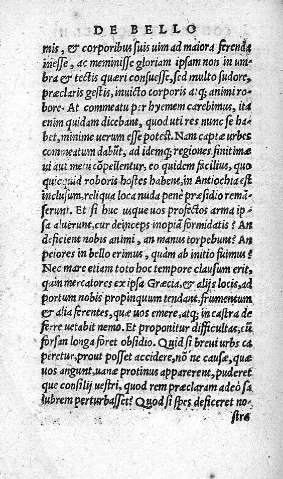 DE BELLO
mis, & corporibus suis uim ad maiora ferenda
inesse, ac meminisse gloriam ipsam non in um-
bra & tectis quæri consuesse, sed multo sudore,
præclaris gestis, inuicto corporis atq; animi ro-
bore. At commeatu per hyemem carebimus, ita
enim quidam dicebant, quod uti res nunc se ha-
bet, minime uerum esse potest. Nam captæ urbes
commeatum dabūt, ad idemq; regiones finitimæ
ui aut metu cōpellentur, eo quidem facilius, quo
quicquid roboris hostes habent, in Antiochia est
inclusum, reliqua loca nuda pene præsidio remā-
serunt. Et si huc usque uos profectos arma ip-
sa aluerunt, cur deinceps inopiā formidatis? An
deficient nobis animi, an manus torpebunt? An
peiores in bello erimus, quàm ab initio fuimus?
Nec mare etiam toto hoc tempore clausum erit,
quin mercatores ex ipsa Græcia, & alijs locis, ad
portum nobis propinquum tendant, frumentum
& alia ferentes, quæ uos emere, atq; in castra de
ferre uetabit nemo. Et proponitur difficultas, cū
forsan longa foret obsidio. Quid si breui urbs ca
peretur, prout posset accidere, nōne causæ, quæ
uos angunt, uanæ protinus apparerent, puderet
que consilij uestri, quod rem præclaram adeò sa
lubrem perturbasset? Quod si spes deficeret no-
stræ